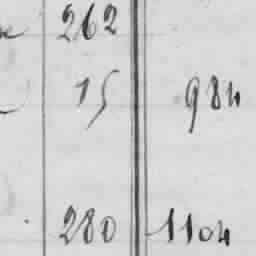 262
15 984
280 1104